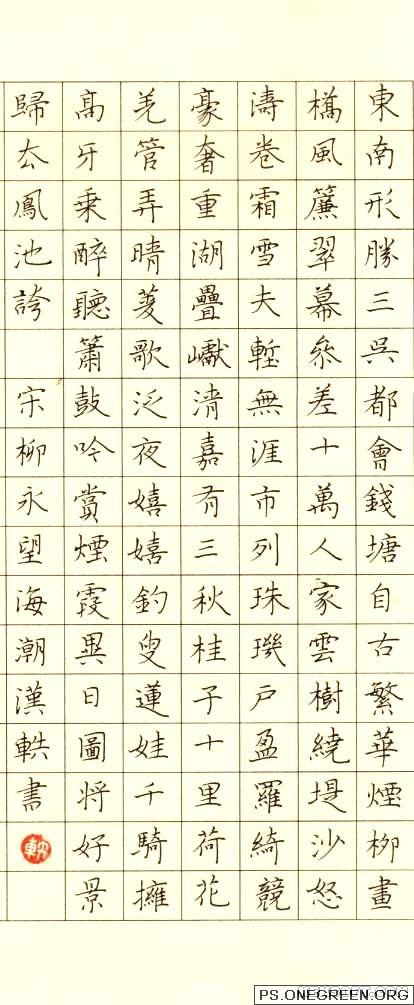 東南形勝三吳都會錢塘自古繁華煙柳畫
橋風簾翠幕參差十萬人家雲樹繞堤沙怒
濤卷霜雪夫塹無涯市列珠璣戶盈羅綺競
豪奢重湖疊巘清嘉有三秋桂子十里荷花
羌管弄晴菱歌泛夜嬉嬉釣叟蓮娃千騎擁
高牙乘醉聽簫鼓吟賞煙霞異日圖將好景
歸去鳳池誇 宋柳永望海潮漢軼書
PS.ONEGREEN.ORG